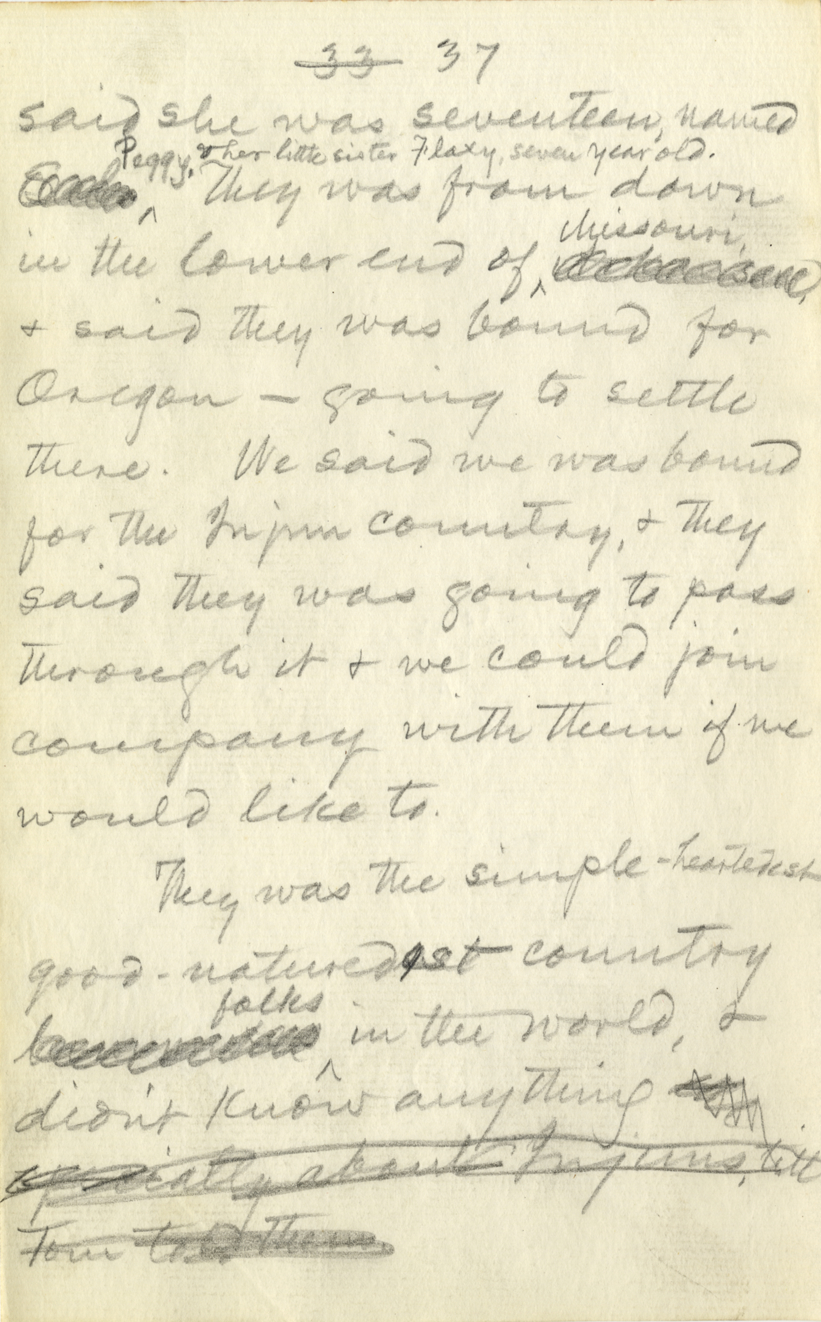 33 37
said she was seventeen, named
Peggy, & her little sister Flaxy, seven year old.
They was from down
Missouri,
in the lower end of
& said they was bound for
Oregon — going to settle
there. We said we was bound
for the Injun country, & they
said they was going to pass
through it & we could join
company with them if we
would like to.
They was the simple-heartedest
good-naturedest country
folks
in the world, &
didn't know anything
specially about Injuns, till
Tom told them.